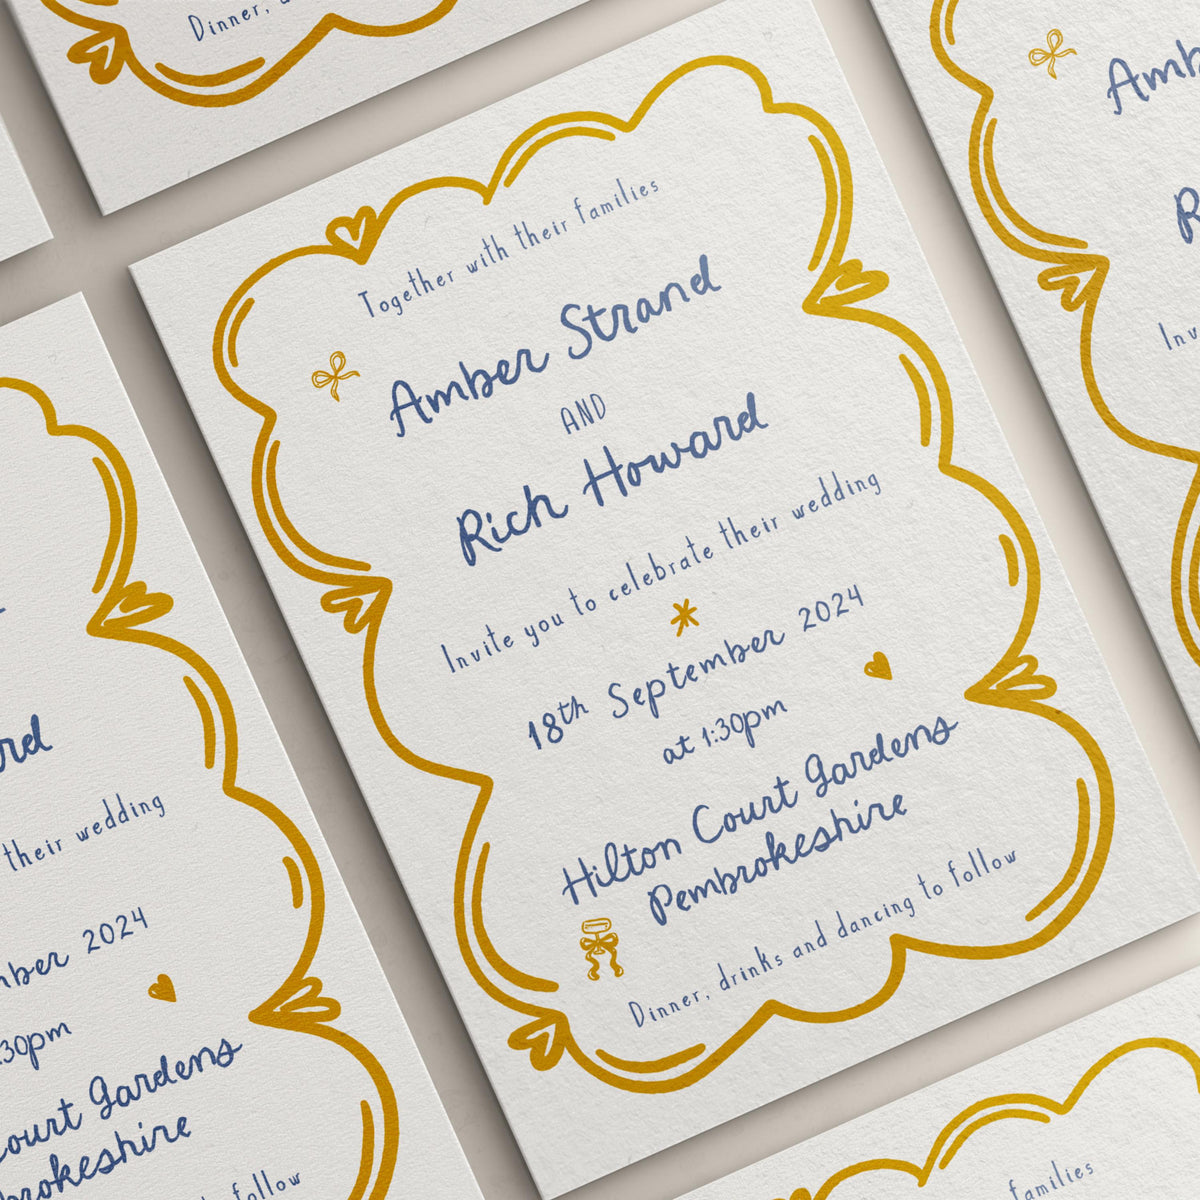 Together with their families
Amber Strand
AND
Rich Howard
Invite you to celebrate their wedding
18th September 2024
at 1:30pm
Hilton Court Gardens
Pembrokeshire
Dinner, drinks and dancing to follow
Dinner,
their wedding
2024
:30pm
Court Gardens
follow
Amb
R
Invi
families